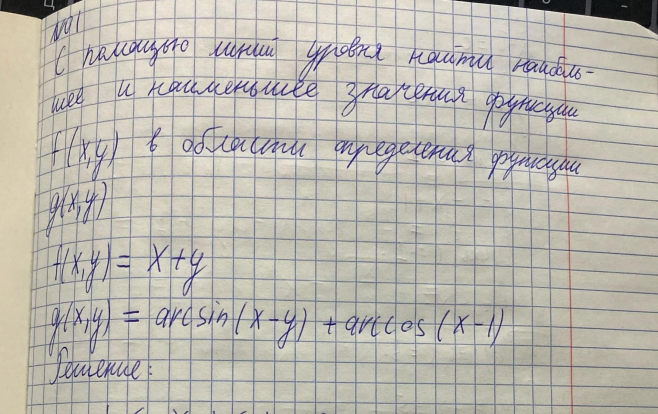 №1
С помощью линий уровня найти наиболь-
шее и наименьшее значения функции
f(x,y) в области определения функции
g(x,y)
f(x,y) = x+y
g(x,y) = arcsin(x-y) + arccos(x-1)
Решение: